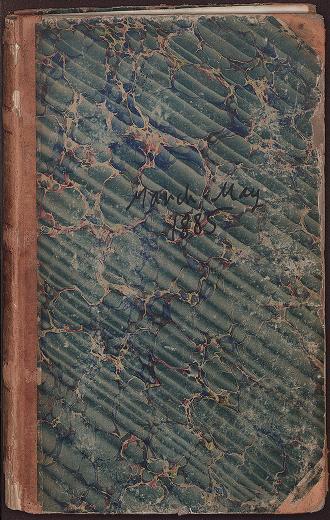 March & May
1885